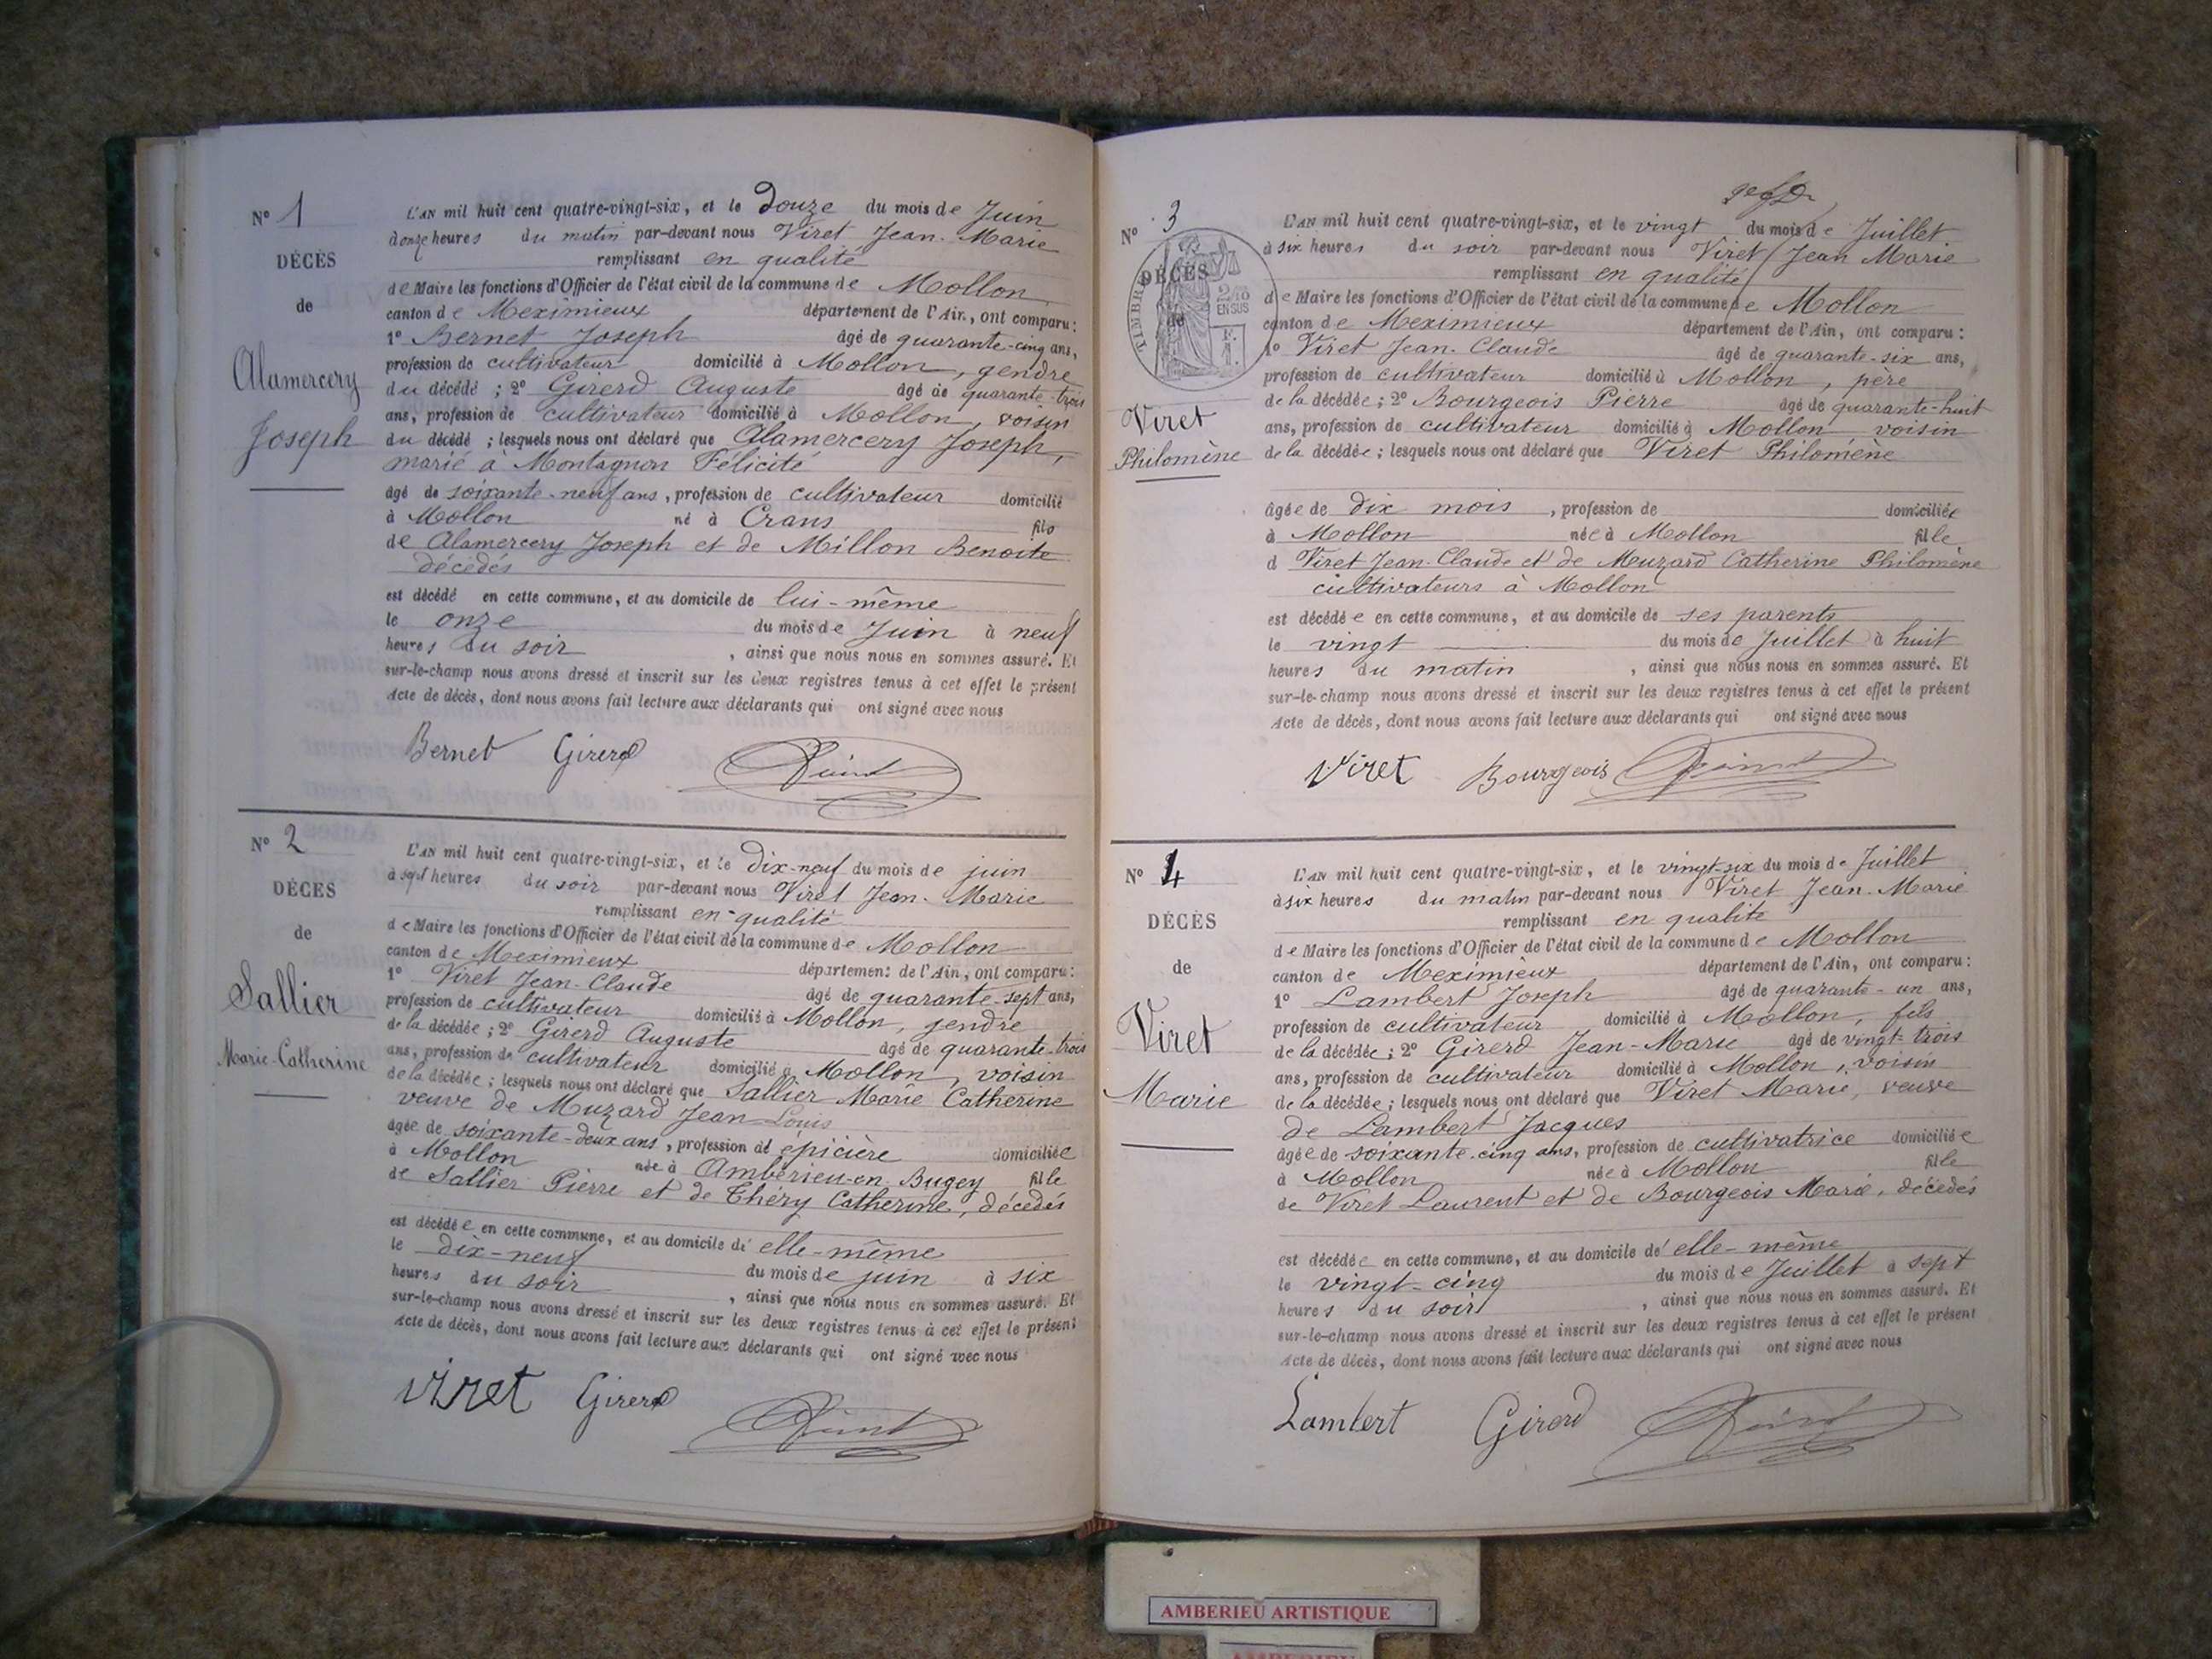 N° 1
DÉCÈS
de
Alamercery
Joseph
L'AN mil huit cent quatre-vingt-six, et le Douze du mois de Juin
à onze heures du matin par-devant nous Viret Jean-Marie
remplissant en qualité
de Maire les fonctions d'Officier de l'état civil de la commune de Mollon
canton de Meximieux département de l'Ain, ont comparu :
1° Bernet Joseph âgé de quarante-cinq ans,
profession de cultivateur domicilié à Mollon, gendre
du décédé ; 2° Girerd Auguste âgé de quarante-trois
ans, profession de cultivateur domicilié à Mollon, voisin
du décédé ; lesquels nous ont déclaré que Alamercery Joseph,
marié à Montagnon Félicité
âgé de soixante-neuf ans, profession de cultivateur domicilié
à Mollon né à Crans fils
de Alamercery Joseph et de Millon Benoite
décédés
est décédé en cette commune, et au domicile de lui-même
le onze du mois de Juin à neuf
heures du soir, ainsi que nous nous en sommes assuré. Et
sur-le-champ nous avons dressé et inscrit sur les deux registres tenus à cet effet le présent
Acte de décès, dont nous avons fait lecture aux déclarants qui ont signé avec nous
Bernet Girerd
N° 2
DÉCÈS
de
Sallier
Marie-Catherine
L'AN mil huit cent quatre-vingt-six, et le dix-neuf du mois de juin
à sept heures du soir par-devant nous Viret Jean-Marie
remplissant en qualité
de Maire les fonctions d'Officier de l'état civil de la commune de Mollon
canton de Meximieux département de l'Ain, ont comparu :
1° Viret Jean-Claude âgé de quarante-sept ans,
profession de cultivateur domicilié à Mollon, gendre
de la décédée ; 2° Girerd Auguste âgé de quarante-trois
ans, profession de cultivateur domicilié à Mollon, voisin
de la décédée ; lesquels nous ont déclaré que Sallier Marie Catherine
veuve de Muzard Jean Louis
âgée de soixante-deux ans, profession de épicière domiciliée
à Mollon née à Ambérieu-en-Bugey fille
de Sallier Pierre et de Théry Catherine, décédés
est décédée en cette commune, et au domicile de elle-même
le dix-neuf du mois de juin à six
heures du soir, ainsi que nous nous en sommes assuré. Et
sur-le-champ nous avons dressé et inscrit sur les deux registres tenus à cet effet le présent
Acte de décès, dont nous avons fait lecture aux déclarants qui ont signé avec nous
Viret Girerd
N° 3
DÉCÈS
de
TIMBRE
2/10
EN SUS
Viret
Philomène
L'AN mil huit cent quatre-vingt-six, et le vingt du mois de Juillet
à six heures du soir par-devant nous Viret Jean Marie
remplissant en qualité
de Maire les fonctions d'Officier de l'état civil de la commune de Mollon
canton de Meximieux département de l'Ain, ont comparu :
1° Viret Jean-Claude âgé de quarante-six ans,
profession de cultivateur domicilié à Mollon, père
de la décédée ; 2° Bourgeois Pierre âgé de quarante-huit
ans, profession de cultivateur domicilié à Mollon voisin
de la décédée ; lesquels nous ont déclaré que Viret Philomène
âgée de dix mois, profession de domiciliée
à Mollon née à Mollon fille
d Viret Jean-Claude et de Muzard Catherine Philomène
cultivateurs à Mollon
est décédée en cette commune, et au domicile de ses parents
le vingt du mois de Juillet à huit
heures du matin, ainsi que nous nous en sommes assuré. Et
sur-le-champ nous avons dressé et inscrit sur les deux registres tenus à cet effet le présent
Acte de décès, dont nous avons fait lecture aux déclarants qui ont signé avec nous
Viret Bourgeois
N° 4
DÉCÈS
de
Viret
Marie
L'AN mil huit cent quatre-vingt-six, et le vingt-six du mois de Juillet
à six heures du matin par-devant nous Viret Jean-Marie
remplissant en qualité
de Maire les fonctions d'Officier de l'état civil de la commune de Mollon
canton de Meximieux département de l'Ain, ont comparu :
1° Lambert Joseph âgé de quarante-un ans,
profession de cultivateur domicilié à Mollon, fils
de la décédée ; 2° Girerd Jean-Marie âgé de vingt-trois
ans, profession de cultivateur domicilié à Mollon, voisin
de la décédée ; lesquels nous ont déclaré que Viret Marie, veuve
de Lambert Jacques
âgée de soixante-cinq ans, profession de cultivatrice domiciliée
à Mollon née à Mollon fille
de Viret Laurent et de Bourgeois Marie, décédés
est décédée en cette commune, et au domicile de elle-même
le vingt-cinq du mois de Juillet à sept
heures du soir, ainsi que nous nous en sommes assuré. Et
sur-le-champ nous avons dressé et inscrit sur les deux registres tenus à cet effet le présent
Acte de décès, dont nous avons fait lecture aux déclarants qui ont signé avec nous
Lambert Girerd
AMBERIEU ARTISTIQUE
AMBERIEU